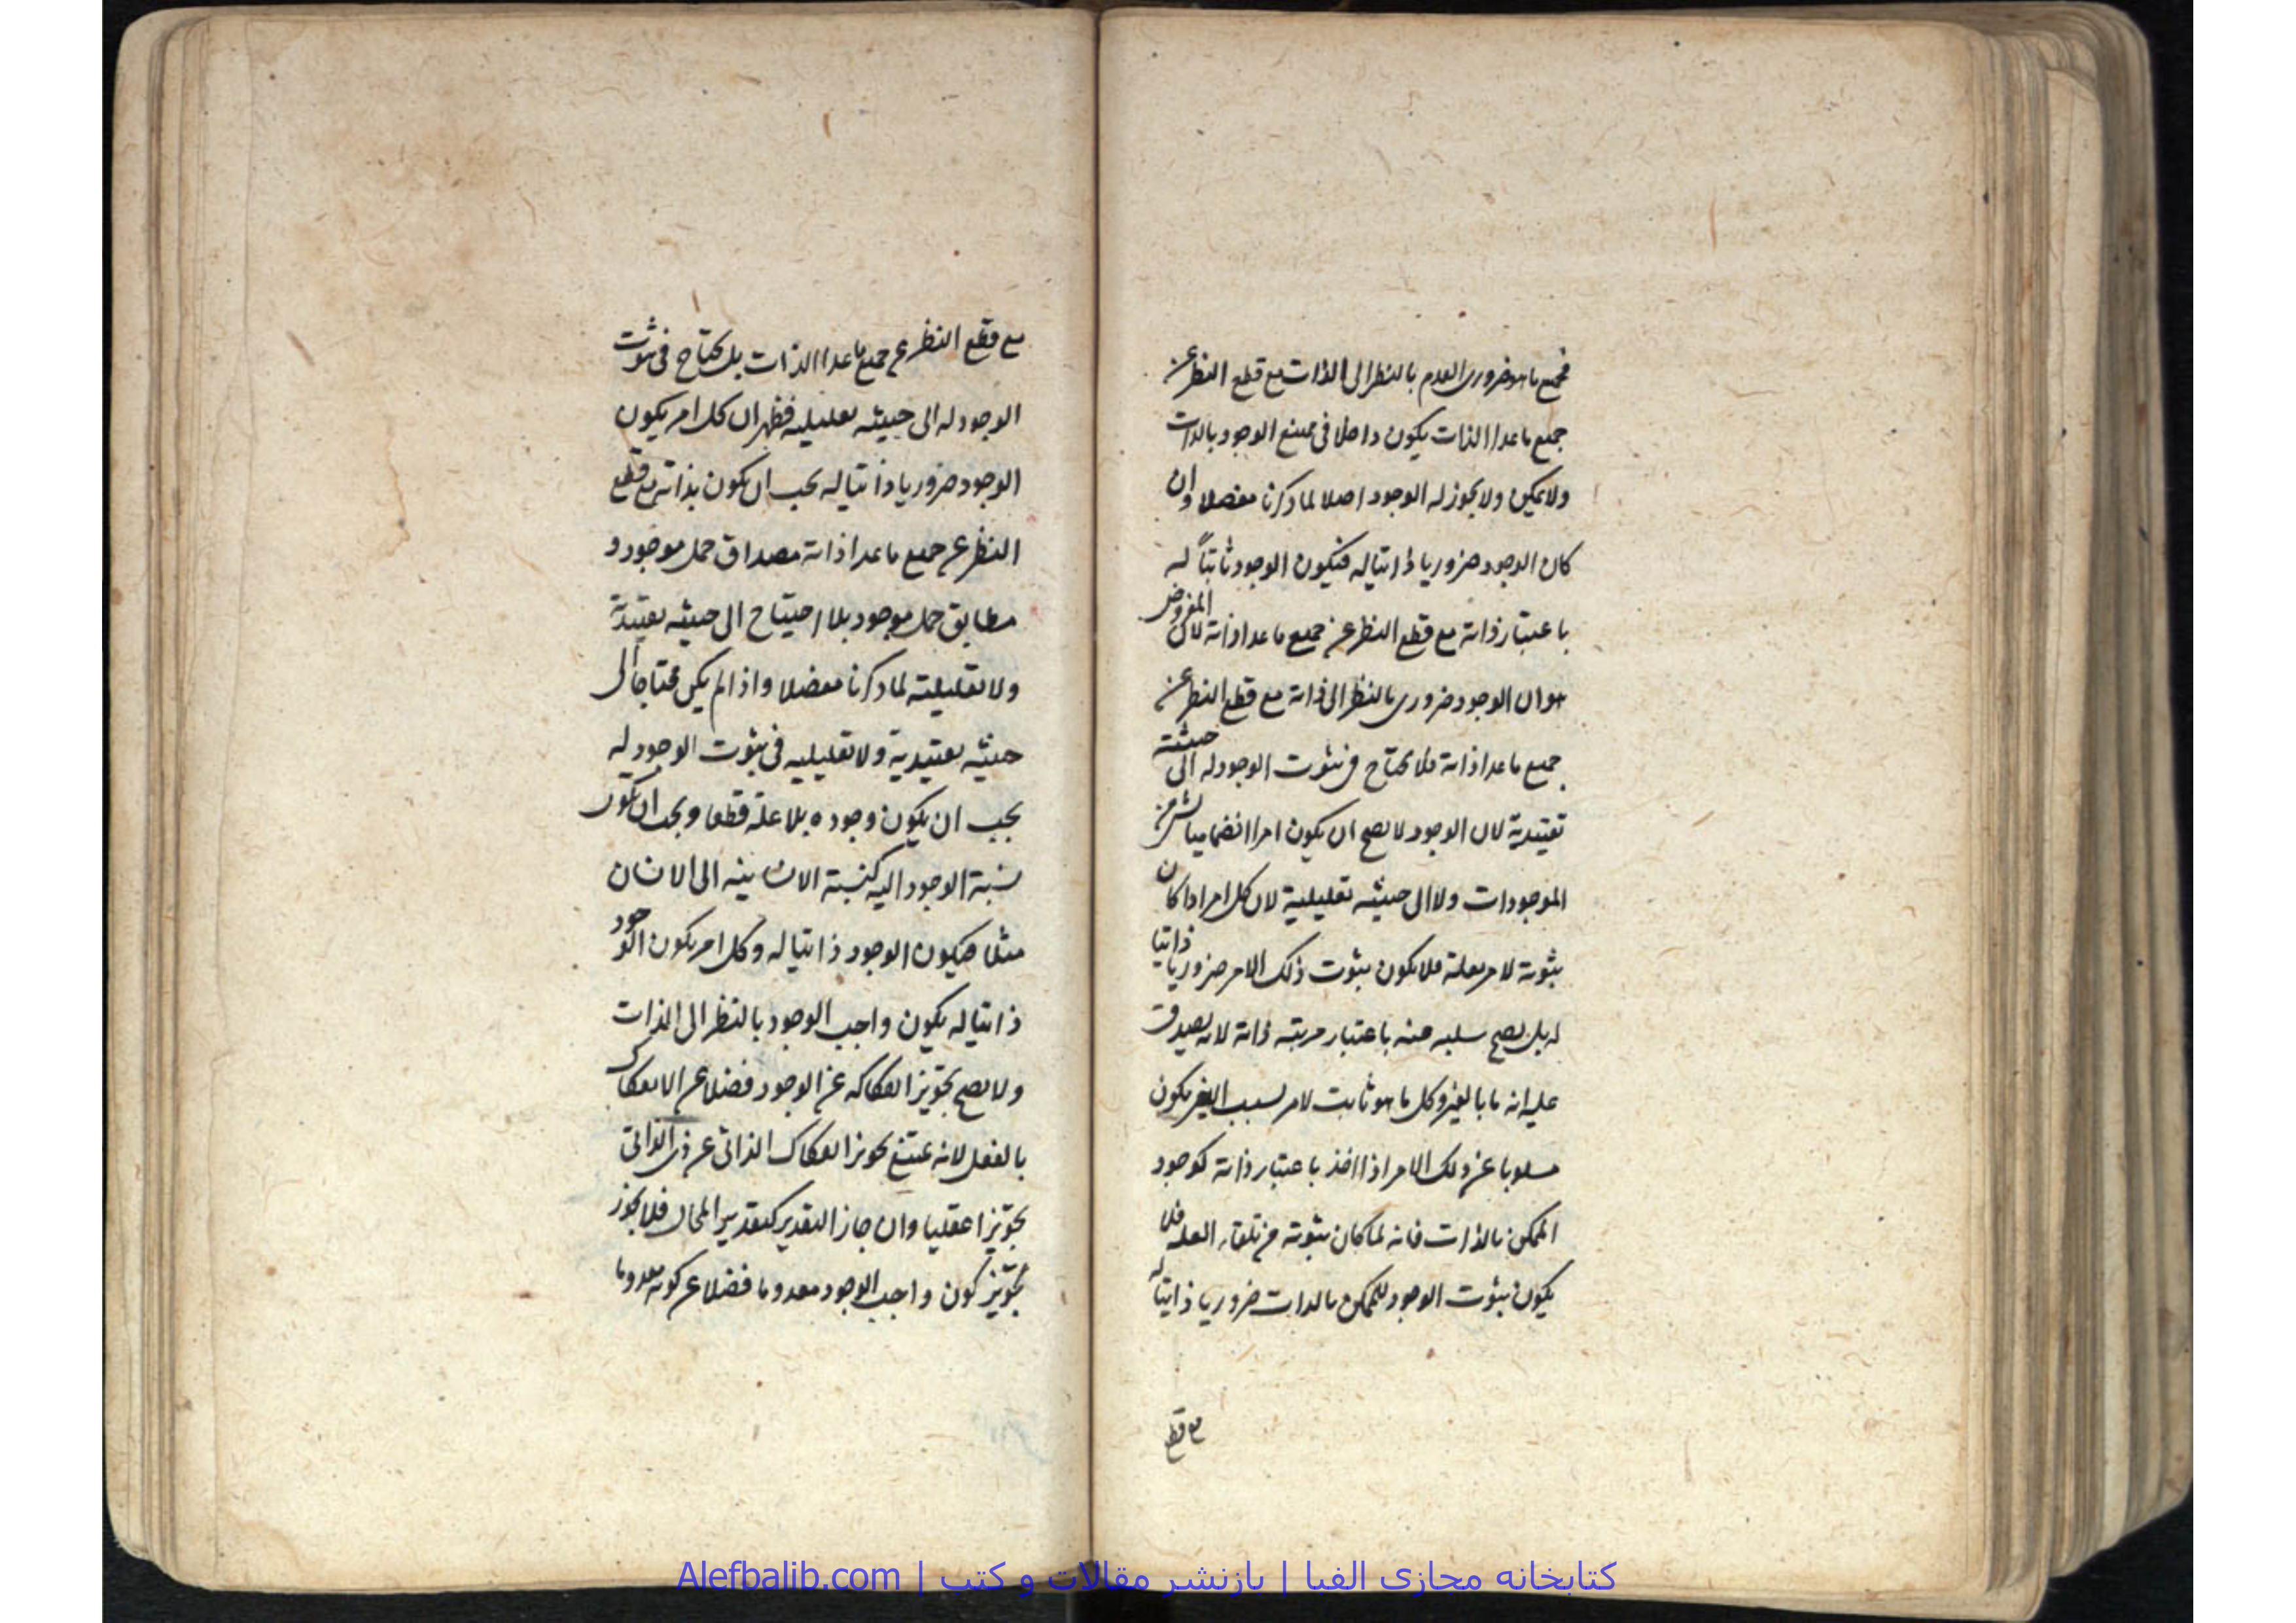 فجميع ما هو ضروري العدم بالنظر الى الذات مع قطع النظر عن
جميع ماعدا الذات يكون داخلا في ممتنع الوجود بالذات
ولا يمكن ولا يجوز له الوجود اصلا لما ذكرنا مفصلا وان
كان الوجود ضروريا ذاتيا له فيكون الوجود ثابتاً له
باعتبار ذاته مع قطع النظر عن جميع ماعدا ذاته لان المفروض
هو ان الوجود ضروري بالنظر الى ذاته مع قطع النظر عن
جميع ماعدا ذاته فلا يحتاج في ثبوت الوجود له الى حيثية
تقييدية لان الوجود لا يصح ان يكون امرا انضماميا بشئ من
الموجودات ولا الى حيثيه تعليلية لان كل امر اذا كان
ثبوته لامر بعلة فلا يكون ثبوت ذلك الامر ضروريا ذاتيا
له بل يصح سلبه عنه باعتبار مرتبه ذاته لانه يصدق
عليه انه ما بالغير وكل ما هو ثابت لامر بسبب الغير يكون
مسلوبا عن ذلك الامر اذا اخذ باعتبار ذاته كوجود
الممكن بالذات فانه لما كان ثبوته من تلقاء العله فلا
يكون ثبوت الوجود للممكن بالذات ضروريا ذاتيا له
مع قطع
مع قطع النظر عن جميع ماعدا الذات بل يحتاج في ثبوت
الوجود له الى حيثيه تعليليه فظهر ان كل امر يكون
الوجود ضروريا ذاتيا له يجب ان يكون بذاته مع قطع
النظر عن جميع ماعدا ذاته مصداق حمل موجود و
مطابق حمل موجود بلا احتياج الى حيثيه تقييدية
ولا تعليلية لما ذكرنا مفصلا واذا لم يكن محتاجا الى
حيثيه تقييدية ولا تعليليه في ثبوت الوجود له
يجب ان يكون وجوده بلا علة قطعا ويجب ان يكون
نسبة الوجود اليه كنسبة الانسانيه الى الانسان
مثلا فيكون الوجود ذاتيا له وكل امر يكون الوجود
ذاتيا له يكون واجب الوجود بالنظر الى الذات
ولا يصح تجويز انفكاكه عن الوجود فضلا عن الانفكاك
بالفعل لانه يمتنع تجويز انفكاك الذاتي عن ذى الذاتي
تجويزا عقليا وان جاز التقدير كتقدير المحال فلا يجوز
تجويز كون واجب الوجود معدوما فضلا عن كونه معدوما
کتابخانه مجازی الفبا | بازنشر مقالات و کتب | Alefbalib.com